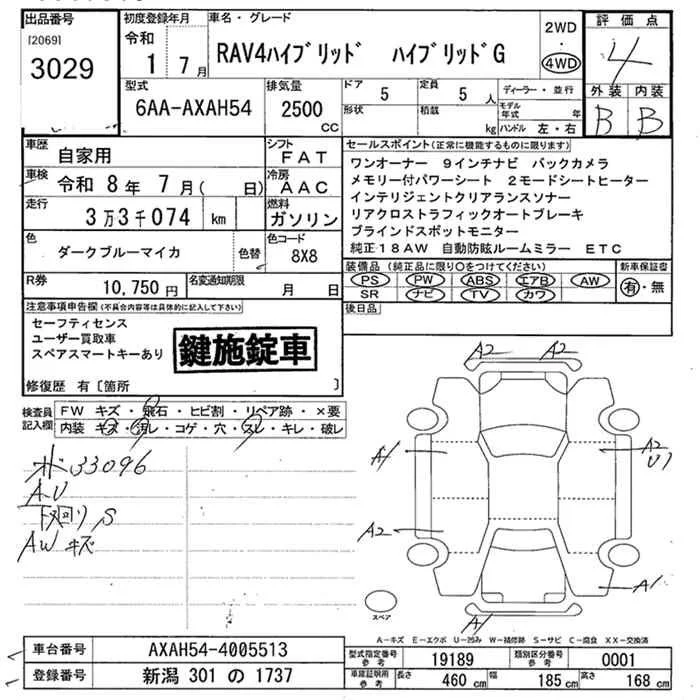 出品番号
[2069]
3029
初度登録年月
令和
1 7月
車名・グレード
RAV4ハイブリッド ハイブリッドG
2WD
・
4WD
評価点
4
外装 内装
B B
型式
6AA-AXAH54
排気量
2500
cc
ドア
5
定員
5人
形状
積載
kg
ディーラー・並行
モデル年式 年
ハンドル 左・右
車歴
自家用
シフト
FAT
車検
令和 8年 7月( 日)
冷房
AAC
走行
3万3千074 km
燃料
ガソリン
色
ダークブルーマイカ
色替
色コード
8X8
R券
10,750円
名変通知期限
月 日
セールスポイント(正常に機能するものに限ります)
ワンオーナー 9インチナビ バックカメラ
メモリー付パワーシート 2モードシートヒーター
インテリジェントクリアランスソナー
リアクロストラフィックオートブレーキ
ブラインドスポットモニター
純正18AW 自動防眩ルームミラー ETC
装備品(純正品に限り○をつけてください)
PS PW ABS エアB AW
SR ナビ TV カワ
新車保証書
有・無
後日品
注意事項申告欄(不具合内容等は具体的に記入して下さい)
セーフティセンス
ユーザー買取車
スペアスマートキーあり
鍵施錠車
修復歴 有〔箇所 〕
検査員
記入欄
FW キズ・飛石・ヒビ割・リペア跡・×要
内装 キズ・汚レ・コゲ・穴・スレ・キレ・破レ
オド33096
A.U
下回りS
AW キズ
A2 A2
A1
A2
U1
A2
A1
A1
スペア
A-キズ E-エクボ U-凹み W-補修跡 S-サビ C-腐食 XX-交換済
車台番号
AXAH54-4005513
登録番号
新潟 301 の 1737
型式指定番号
参考
19189
類別区分番号
参考
0001
車庫証明用
参考
長さ
460 cm
幅
185 cm
高さ
168 cm